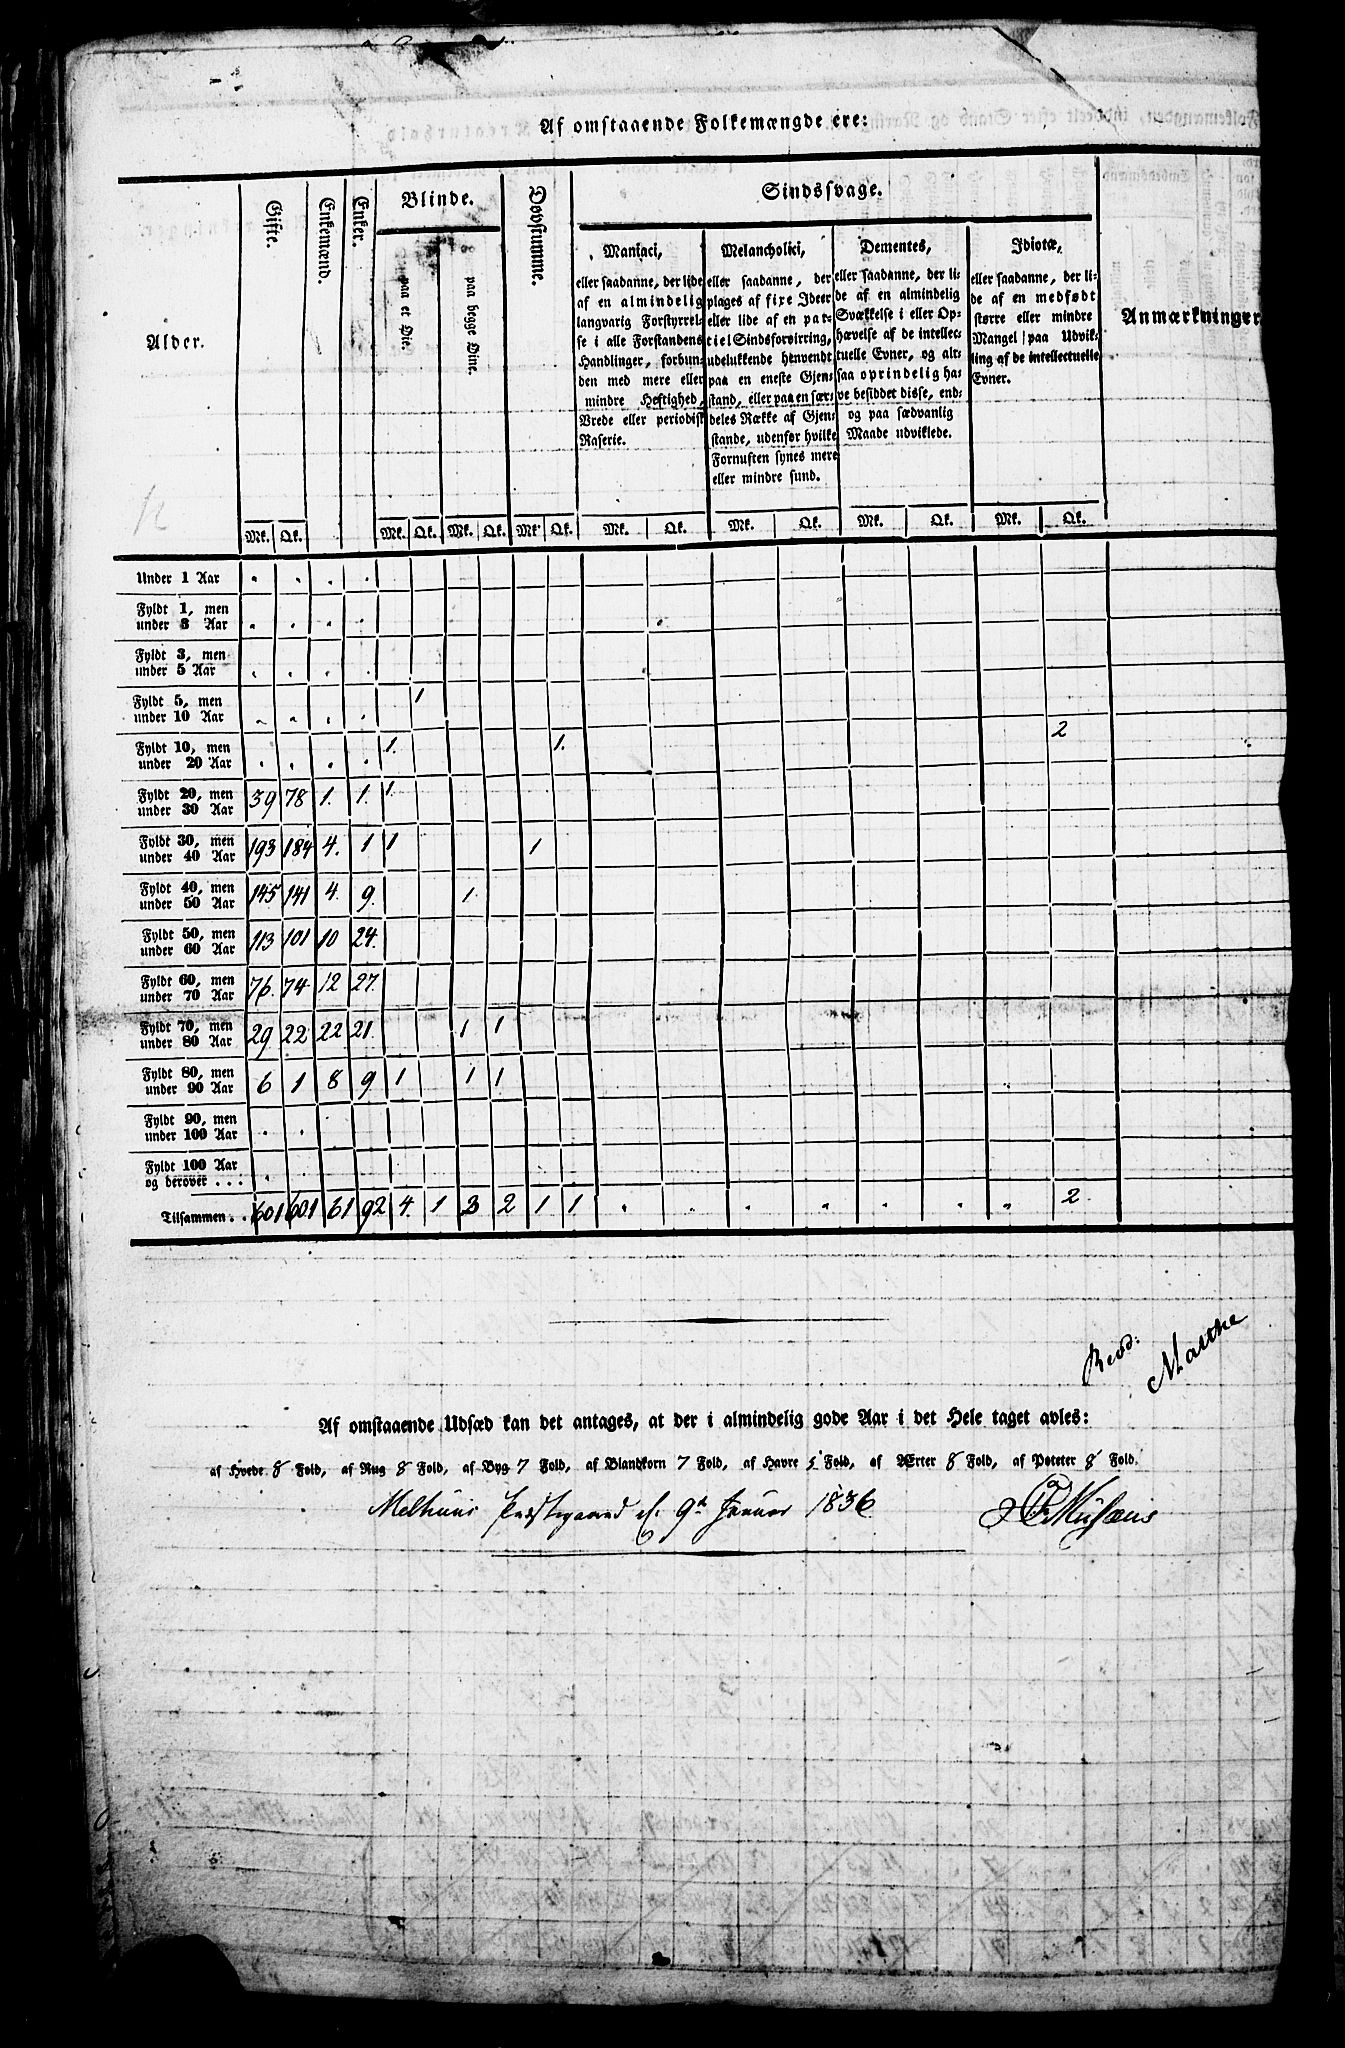 Af omstaaende Folkemængde ere:
Alder.
Gifte.
Enkemænd.
Enker.
Blinde.
paa et Øie.
paa begge Øine.
Døvstumme.
Sindssvage.
Maniaci,
eller saadanne, der lide
af en almindelig
langvarig Forstyrrel-
se i alle Forstandens
Handlinger, forbun-
den med mere eller
mindre Heftighed,
Vrede eller periodisk
Raserie.
Melancholici,
eller saadanne, der
plages af fixe Ideer
eller lide af en par-
tiel Sindsforvirring,
udelukkende henvendt
paa en eneste Gjen-
stand, eller paa en sær-
deles Række af Gjen-
stande, udenfor hvilke
Fornuften synes mere
eller mindre sund.
Dementes,
eller saadanne, der li-
de af en almindelig
Svækkelse i eller Op-
hævelse af de intellec-
tuelle Evner, og alt-
saa oprindelig ha-
ve besiddet disse, end-
og paa sædvanlig
Maade udviklede.
Idiotæ,
eller saadanne, der li-
de af en medfødt
større eller mindre
Mangel paa Udvik-
ling af de intellectuelle
Evner.
Anmærkninger
Mk. Qk. Mk. Qk. Mk. Qk. Mk. Qk. Mk. Qk. Mk. Qk. Mk. Qk. Mk. Qk.
Under 1 Aar
Fyldt 1, men
under 3 Aar
Fyldt 3, men
under 5 Aar
Fyldt 5, men
under 10 Aar 1
Fyldt 10, men
under 20 Aar 1. 1. 2
Fyldt 20, men
under 30 Aar 39 78 1. 1. 1.
Fyldt 30, men
under 40 Aar 193 184 4. 1 1 1
Fyldt 40, men
under 50 Aar 145 141 4. 9. 1.
Fyldt 50, men
under 60 Aar 113 101 10 24.
Fyldt 60, men
under 70 Aar 76. 74 12 27.
Fyldt 70, men
under 80 Aar 29 22 22 21. 1 1
Fyldt 80, men
under 90 Aar 6 1 8 9 1 1 1
Fyldt 90, men
under 100 Aar
Fyldt 100 Aar
og derover . . .
Tilsammen . . 601 601 61 92 4. 1 3 2 1 1 2.
Revd:
Malthe
Af omstaaende Udsæd kan det antages, at der i almindelig gode Aar i det Hele taget avles:
af Hvede 8 Fold, af Rug 8 Fold, af Byg 7 Fold, af Blandkorn 7 Fold, af Havre 5 Fold, af Ærter 8 Fold, af Poteter 8 Fold.
Melhuus Præstegaard d. 9d Januar 1836